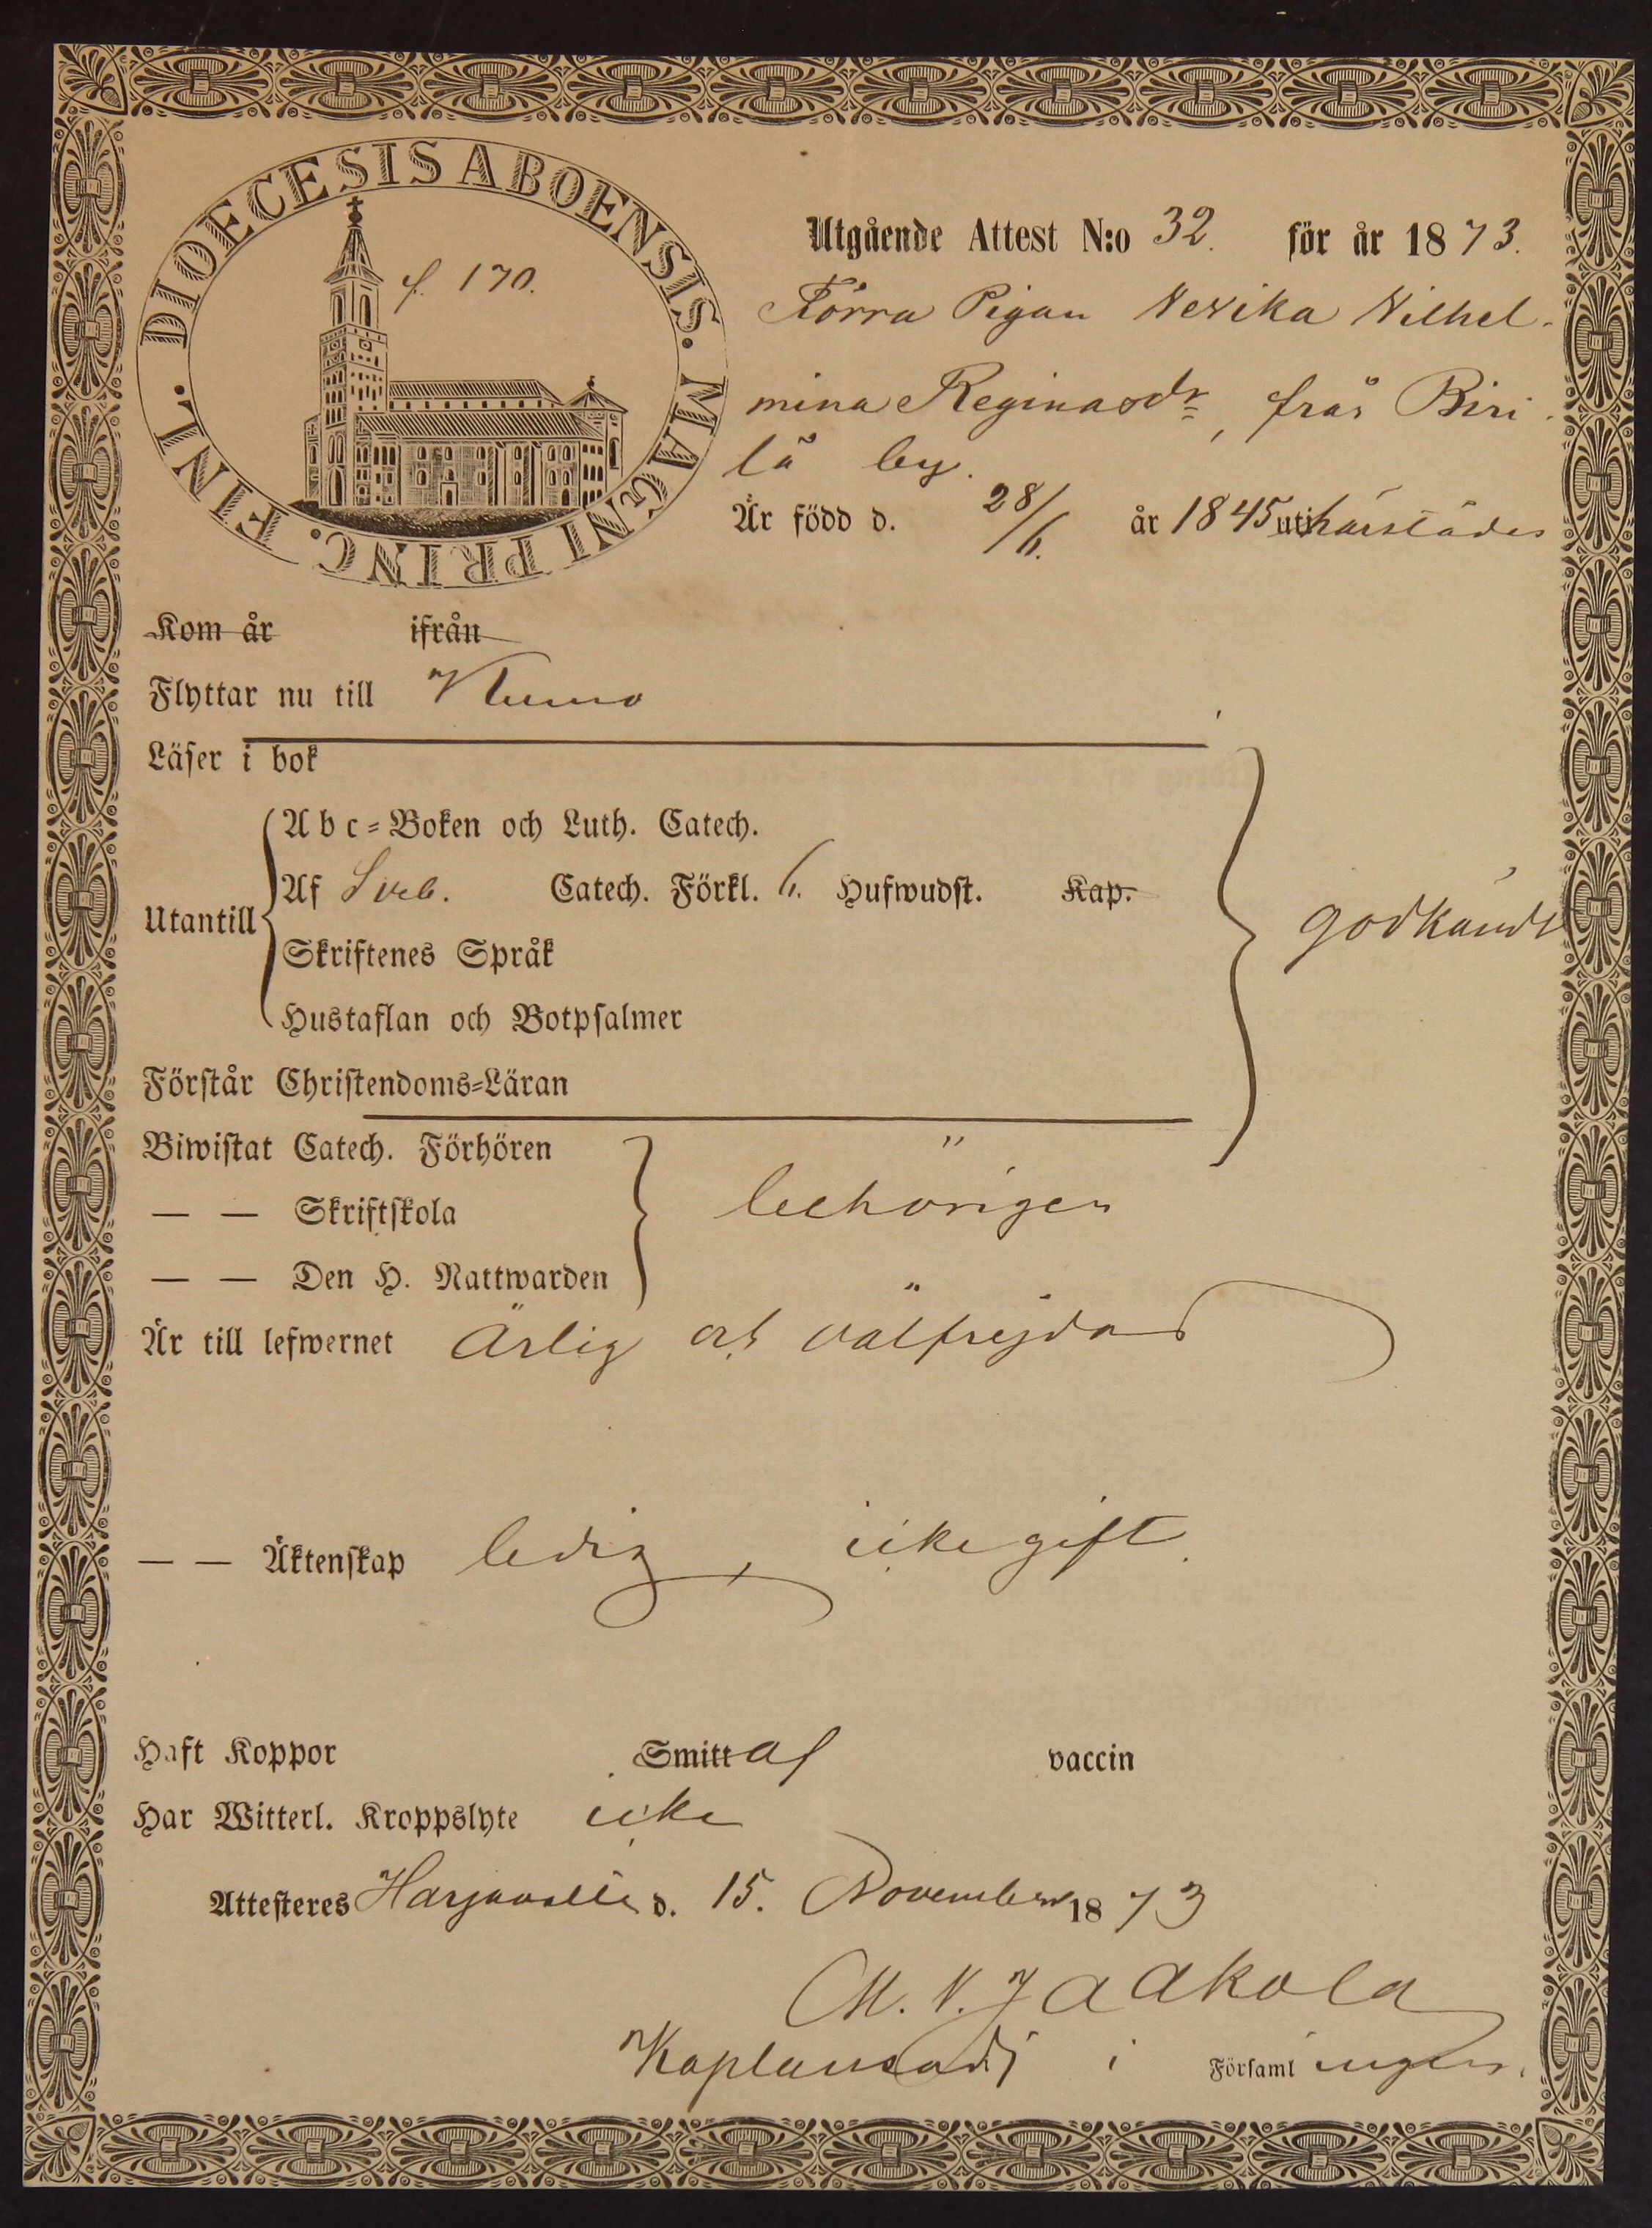 DIOECESIS ABOENSIS. MAGNI PRINC. FINL.
f. 170.
Utgående Attest N:o 32. för år 1873.
Förra Pigan Vexika Vilhel-
mina Reginasdr, från Piri-
lä by.
Är född d. 28/6. år 1845 uti härstädes
Kom år ifrån
Flyttar nu till Kumo
Läser i bok
Utantill
Abc-Boken och Luth. Catech.
Af Sveb. Catech. Förkl. 6. Hufwudst. Kap.
godkändt
Skriftenes Språk
Hustaflan och Botpsalmer
Förstår Christendoms-Läran
Biwistat Catech. Förhören
— — Skriftskola behörigen
— — Den H. Nattwarden
Är till lefwernet ärlig och välfrejdad
— — Äktenskap ledig, icke gift.
Haft Koppor Smitt af vaccin
Har Witterl. Kroppslyte icke
Attesteres Harjavalta d. 15. November 1873
M. V. Jaakola
Kaplansadj i Församlingen.